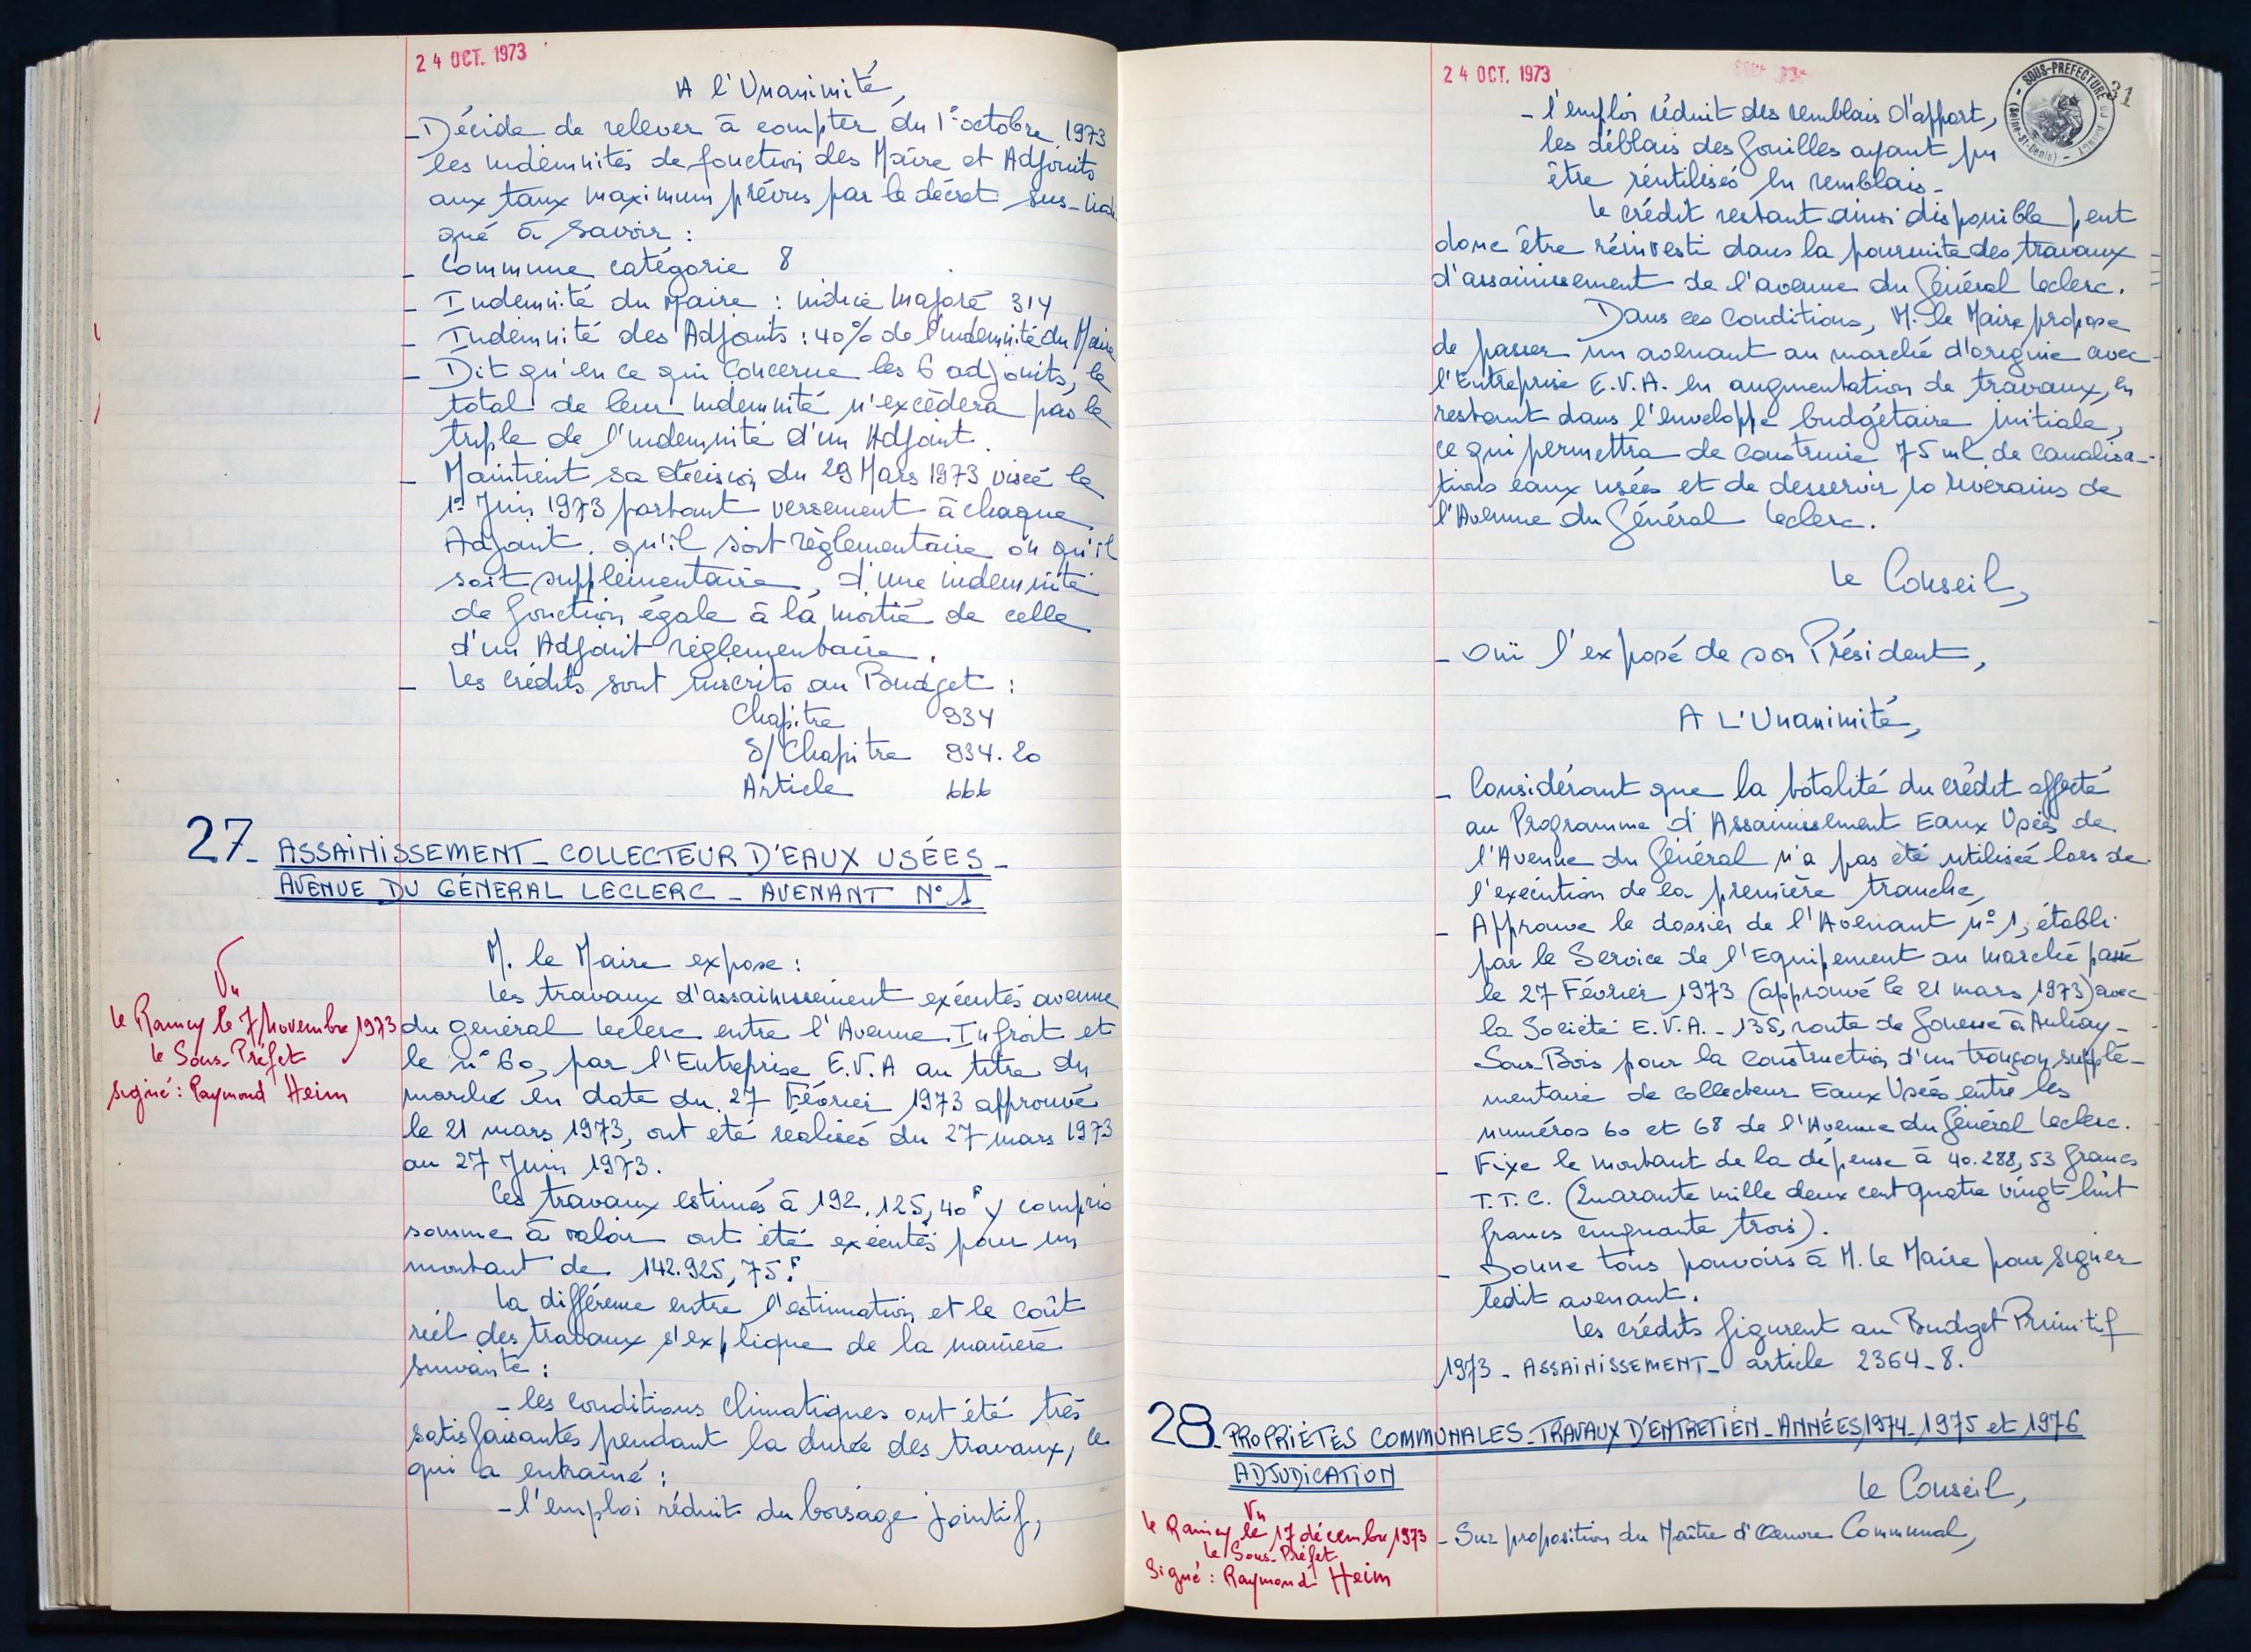 24 OCT. 1973
A l'Unanimité,
- Décide de relever à compter du 1er octobre 1973
les indemnités de fonction des Maire et Adjoints
aux taux maximum prévus par le décret sus-indi
qué à savoir :
- Commune catégorie 8
- Indemnité du Maire : indice majoré 314
- Indemnité des Adjoints : 40% de l'indemnité du Maire
- Dit qu'en ce qui concerne les 6 adjoints, le
total de leur indemnité n'excèdera pas le
triple de l'indemnité d'un Adjoint.
- Maintient sa décision du 29 Mars 1973 visée le
1er Juin 1973 portant versement à chaque
Adjoint. qu'il soit règlementaire ou qu'il
soit supplémentaire, d'une indemnité
de fonction égale à la moitié de celle
d'un Adjoint règlementaire.
- Les crédits sont inscrits au Budget :
Chapitre 934
S/Chapitre 934.20
Article 666
27- ASSAINISSEMENT - COLLECTEUR D'EAUX USÉES -
AVENUE DU GÉNÉRAL LECLERC - AVENANT N°1
Vu
Le Raincy le 7 Novembre 1973
Le Sous-Préfet
signé : Raymond Heim
M. le Maire expose :
Les travaux d'assainissement exécutés avenue
du général Leclerc entre l'Avenue Infroit et
le n° 60, par l'Entreprise E.V.A au titre du
marché en date du 27 Février 1973 approuvé
le 21 mars 1973, ont été réalisés du 27 mars 1973
au 27 Juin 1973.
Ces travaux estimés à 192.125,40F y compris
somme à valoir ont été exécutés pour un
montant de 142.925,75F.
La différence entre l'estimation et le coût
réel des travaux s'explique de la manière
suivante :
- les conditions climatiques ont été très
satisfaisantes pendant la durée des travaux, ce
qui a entraîné :
- l'emploi réduit du boisage jointif,
24 OCT. 1973
SOUS-PREFECTURE DU RAINCY
(Seine-St-Denis)
31
- l'emploi réduit des remblais d'apport,
les déblais des fouilles ayant pu
être réutilisés en remblais -
Le crédit restant ainsi disponible peut
donc être réinvesti dans la poursuite des travaux
d'assainissement de l'avenue du Général Leclerc.
Dans ces conditions, M. le Maire propose
de passer un avenant au marché d'origine avec
l'Entreprise E.V.A. en augmentation de travaux, en
restant dans l'enveloppe budgétaire initiale,
ce qui permettra de construire 75 ml de canalisa-
tions eaux usées et de desservir 10 riverains de
l'Avenue du Général Leclerc.
Le Conseil,
- Ouï l'exposé de son Président,
A L'Unanimité,
- Considérant que la totalité du crédit affecté
au Programme d'Assainissement Eaux Usées de
l'Avenue du Général n'a pas été utilisée lors de
l'exécution de la première tranche,
- Approuve le dossier de l'Avenant n° 1, établi
par le Service de l'Equipement au marché passé
le 27 Février 1973 (approuvé le 21 mars 1973) avec
la Société E.V.A. - 135, route de Gonesse à Aulnay-
Sous-Bois pour la construction d'un tronçon supplé-
mentaire de collecteur Eaux Usées entre les
numéros 60 et 68 de l'Avenue du Général Leclerc.
- Fixe le montant de la dépense à 40.288,53 francs
T.T.C. (Quarante mille deux cent quatre vingt huit
francs cinquante trois).
- Donne tous pouvoirs à M. le Maire pour signer
ledit avenant.
Les crédits figurent au Budget Primitif
1973 - ASSAINISSEMENT - article 2364-8.
28- PROPRIÉTÉS COMMUNALES - TRAVAUX D'ENTRETIEN - ANNÉES 1974 - 1975 et 1976
ADJUDICATION
Vu
Le Raincy le 17 décembre 1973
Le Sous-Préfet
Signé : Raymond Heim
Le Conseil,
- Sur proposition du Maître d'Oeuvre Communal,